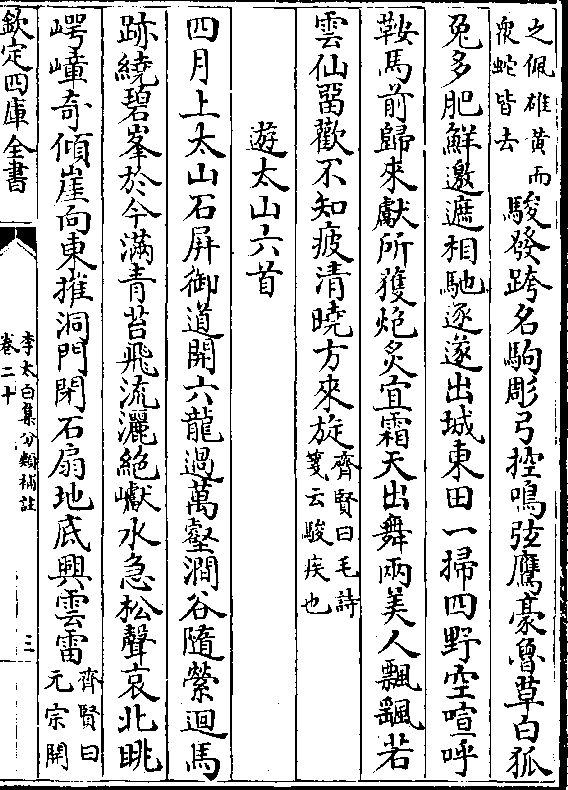 之佩雄黄而
衆蛇皆去
駿發跨名駒彫弓控鳴弦鷹豪魯草白狐
兔多肥鮮邀遮相馳逐遂出城東田一掃四野空喧呼
鞍馬前歸來獻所獲炮炙宜霜天出舞兩美人飄飖若
雲仙留歡不知疲清曉方來旋
齊賢曰毛詩
箋云駿疾也
遊太山六首
四月上太山石屏御道開六龍過萬壑澗谷隨縈迴馬
跡繞碧峯於今滿青苔飛流灑絶巘水急松聲哀北眺
崿嶂奇傾崖向東摧洞門閉石扇地底興雲雷
齊賢曰
元宗開
欽定四庫全書
李太白集分類補註
卷二十
三